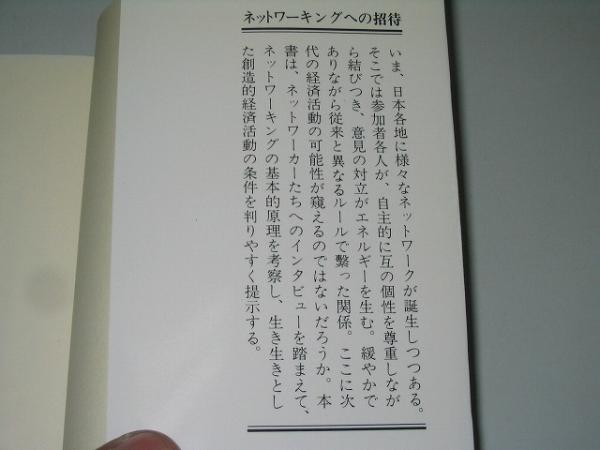 ネットワーキングへの招待
いま、日本各地に様々なネットワークが誕生しつつある。
そこでは参加者各人が、自主的に互の個性を尊重しなが
ら結びつき、意見の対立がエネルギーを生む。緩やかで
ありながら従来と異なるルールで繫った関係。ここに次
代の経済活動の可能性が窺えるのではないだろうか。本
書は、ネットワーカーたちへのインタビューを踏まえて、
ネットワーキングの基本的原理を考察し、生き生きとし
た創造的経済活動の条件を判りやすく提示する。